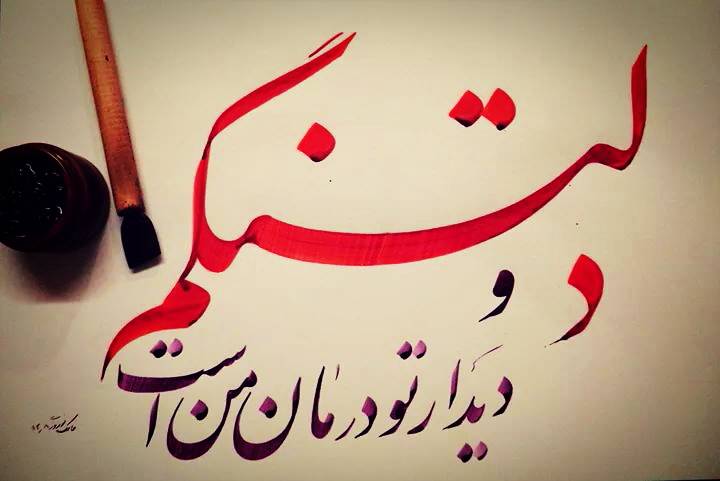 دلتنگم
و
دیدار تو درمان من است